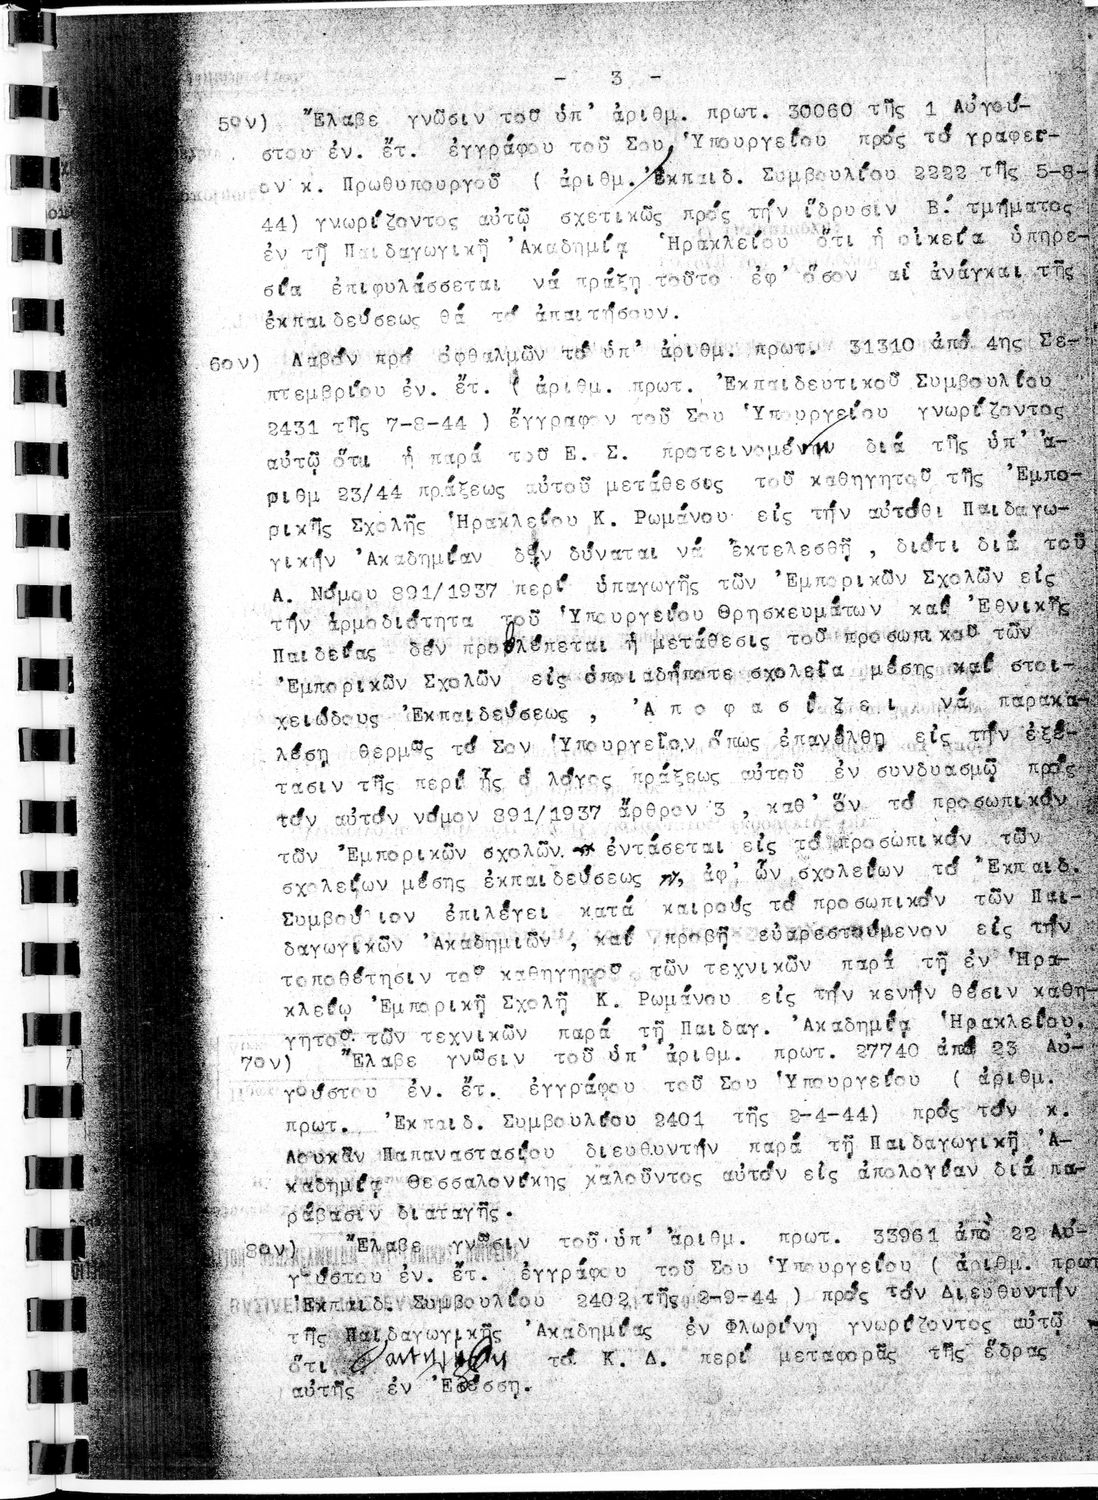 - 3 -
5ον) Ἔλαβε γνῶσιν τοῦ ὑπ' ἀριθμ. πρωτ. 30060 τῆς 1 Αὐγού-
στου ἐν. ἔτ. ἐγγράφου τοῦ Σου Ὑπουργείου πρός τό γραφεῖ-
ον κ. Πρωθυπουργοῦ ( ἀριθμ. Ἐκπαιδ. Συμβουλίου 2222 τῆς 5-8-
44) γνωρίζοντος αὐτῷ σχετικῶς πρός τήν ἵδρυσιν Β. τμήματος
ἐν τῇ Παιδαγωγικῇ Ἀκαδημίᾳ Ἡρακλείου ὅτι ἡ οἰκεία ὑπηρε-
σία ἐπιφυλάσσεται νά πράξῃ τοῦτο ἐφ' ὅσον αἱ ἀνάγκαι τῆς
ἐκπαιδεύσεως θά τό ἀπαιτήσουν.
6ον) Λαβόν πρό ὀφθαλμῶν τό ὑπ' ἀριθμ. πρωτ. 31310 ἀπό 4ης Σε-
πτεμβρίου ἐν. ἔτ. ( ἀριθμ. πρωτ. Ἐκπαιδευτικοῦ Συμβουλίου
2431 τῆς 7-8-44 ) ἔγγραφον τοῦ Σου Ὑπουργείου γνωρίζοντος
αὐτῷ ὅτι ἡ παρά τοῦ Ε. Σ. προτεινομένην διά τῆς ὑπ' ἀ-
ριθμ 23/44 πράξεως αὐτοῦ μετάθεσις τοῦ καθηγητοῦ τῆς Ἐμπο-
ρικῆς Σχολῆς Ἡρακλείου Κ. Ρωμάνου εἰς τήν αὐτόθι Παιδαγω-
γικήν Ἀκαδημίαν δέν δύναται νά ἐκτελεσθῇ , διότι διά τοῦ
Α. Νόμου 891/1937 περί ὑπαγωγῆς τῶν Ἐμπορικῶν Σχολῶν εἰς
τήν ἁρμοδιότητα τοῦ Ὑπουργείου Θρησκευμάτων καί Ἐθνικῆς
Παιδείας δέν προβλέπεται ἡ μετάθεσις τοῦ προσωπικοῦ τῶν
Ἐμπορικῶν Σχολῶν εἰς ὁποιαδήποτε σχολεῖα μέσης καί στοι-
χειώδους Ἐκπαιδεύσεως , Ἀ π ο φ α σ ί ζ ε ι νά παρακα-
λέσῃ θερμῶς τό Σον Ὑπουργεῖον ὅπως ἐπανέλθῃ εἰς τήν ἐξέ-
τασιν τῆς περί ἧς ὁ λόγος πράξεως αὐτοῦ ἐν συνδυασμῷ πρός
τόν αὐτόν νόμον 891/1937 ἄρθρον 3 , καθ' ὅν τό προσωπικόν
τῶν Ἐμπορικῶν σχολῶν ἐντάσεται εἰς τό προσωπικόν τῶν
σχολείων μέσης ἐκπαιδεύσεως , ἀφ' ὧν σχολείων τό Ἐκπαιδ.
Συμβούλιον ἐπιλέγει κατά καιρούς τό προσωπικόν τῶν Παι-
δαγωγικῶν Ἀκαδημιῶν , καί προβῇ εὐαρεστούμενον εἰς τήν
τοποθέτησιν τοῦ καθηγητοῦ τῶν τεχνικῶν παρά τῇ ἐν Ἡρα-
κλείῳ Ἐμπορικῇ Σχολῇ Κ. Ρωμάνου εἰς τήν κενήν θέσιν καθη-
γητοῦ τῶν τεχνικῶν παρά τῇ Παιδαγ. Ἀκαδημίᾳ Ἡρακλείου.
7ον) Ἔλαβε γνῶσιν τοῦ ὑπ' ἀριθμ. πρωτ. 27740 ἀπό 23 Αὐ-
γούστου ἐν. ἔτ. ἐγγράφου τοῦ Σου Ὑπουργείου ( ἀριθμ.
πρωτ. Ἐκπαιδ. Συμβουλίου 2401 τῆς 2-4-44) πρός τόν κ.
Λουκᾶν Παπαναστασίου διευθυντήν παρά τῇ Παιδαγωγικῇ Ἀ-
καδημίᾳ Θεσσαλονίκης καλοῦντος αὐτόν εἰς ἀπολογίαν διά πα-
ράβασιν διαταγῆς.
8ον) Ἔλαβε γνῶσιν τοῦ ὑπ' ἀριθμ. πρωτ. 33961 ἀπό 22 Αὐ-
γούστου ἐν. ἔτ. ἐγγράφου τοῦ Σου Ὑπουργείου ( ἀριθμ. πρωτ
Ἐκπαιδ. Συμβουλίου 2402 τῆς 2-9-44 ) πρός τόν Διευθυντήν
τῆς Παιδαγωγικῆς Ἀκαδημίας ἐν Φλωρίνῃ γνωρίζοντος αὐτῷ
ὅτι τό Κ. Δ. περί μεταφορᾶς τῆς ἕδρας
αὐτῆς ἐν Ἐδέσσῃ.